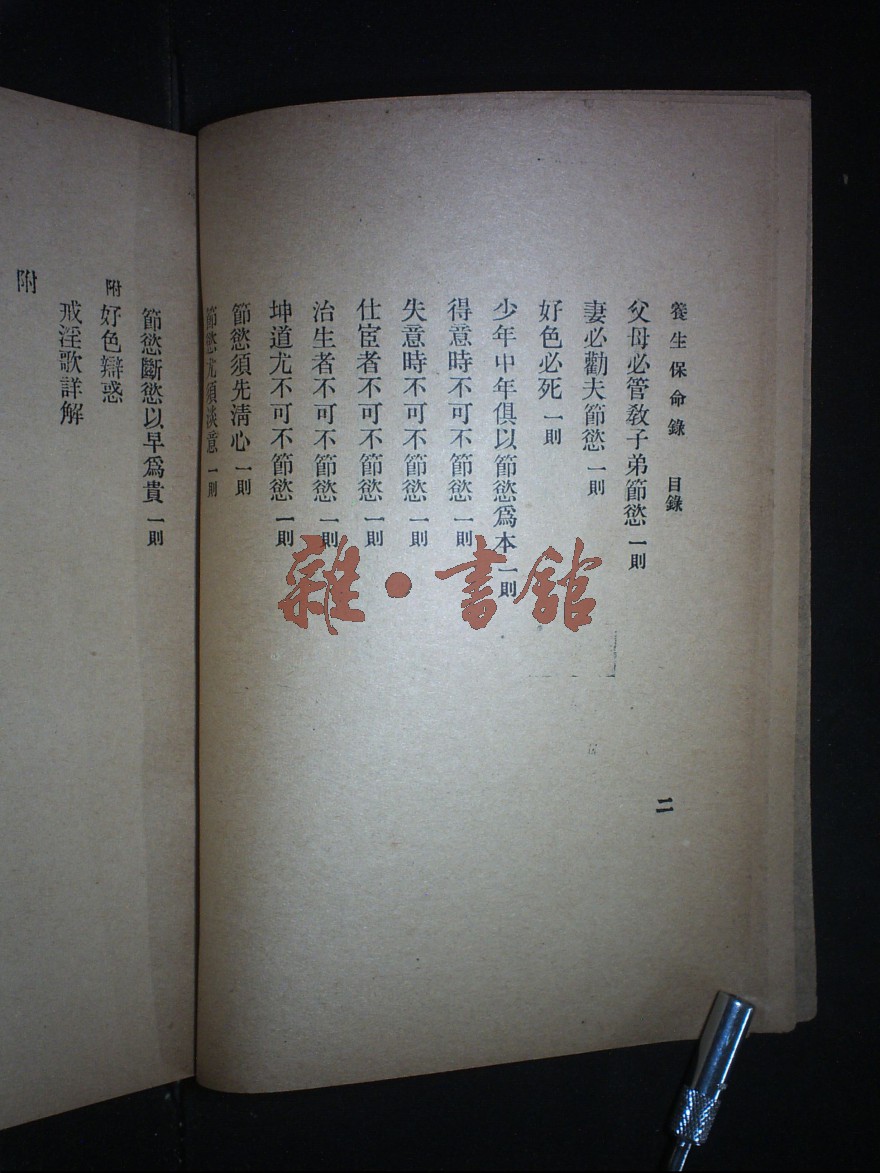 養生保命錄 目錄
父母必管教子弟節慾 一則
妻必勸夫節慾 一則
好色必死 一則
少年中年俱以節慾爲本 一則
得意時不可不節慾 一則
失意時不可不節慾 一則
仕宦者不可不節慾 一則
治生者不可不節慾 一則
坤道尤不可不節慾 一則
節慾須先清心 一則
節慾尤須淡意 一則
二
節慾斷慾以早爲貴 一則
附 好色辯惑
戒淫歌詳解
附
雜·書館